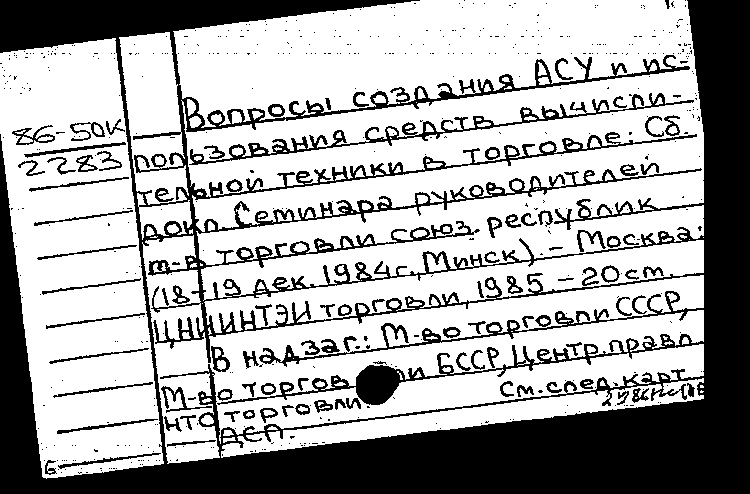 Вопросы создания АСУ и ис-
86-50К
2283 пользования средств вычисли-
тельной техники в торговле: Сб.
докл. Семинара руководителей
т-в торговли союз. республик
(18-19 дек. 1984г., Минск). - Москва:
ЦНИИНТЭИ торговли, 1985. - 20 ст.
В надзаг.: М-во торговли СССР,
М-во торгов ли БССР, Центр. правл
НТО торговли.
См. след. карт
ДСП.
Б